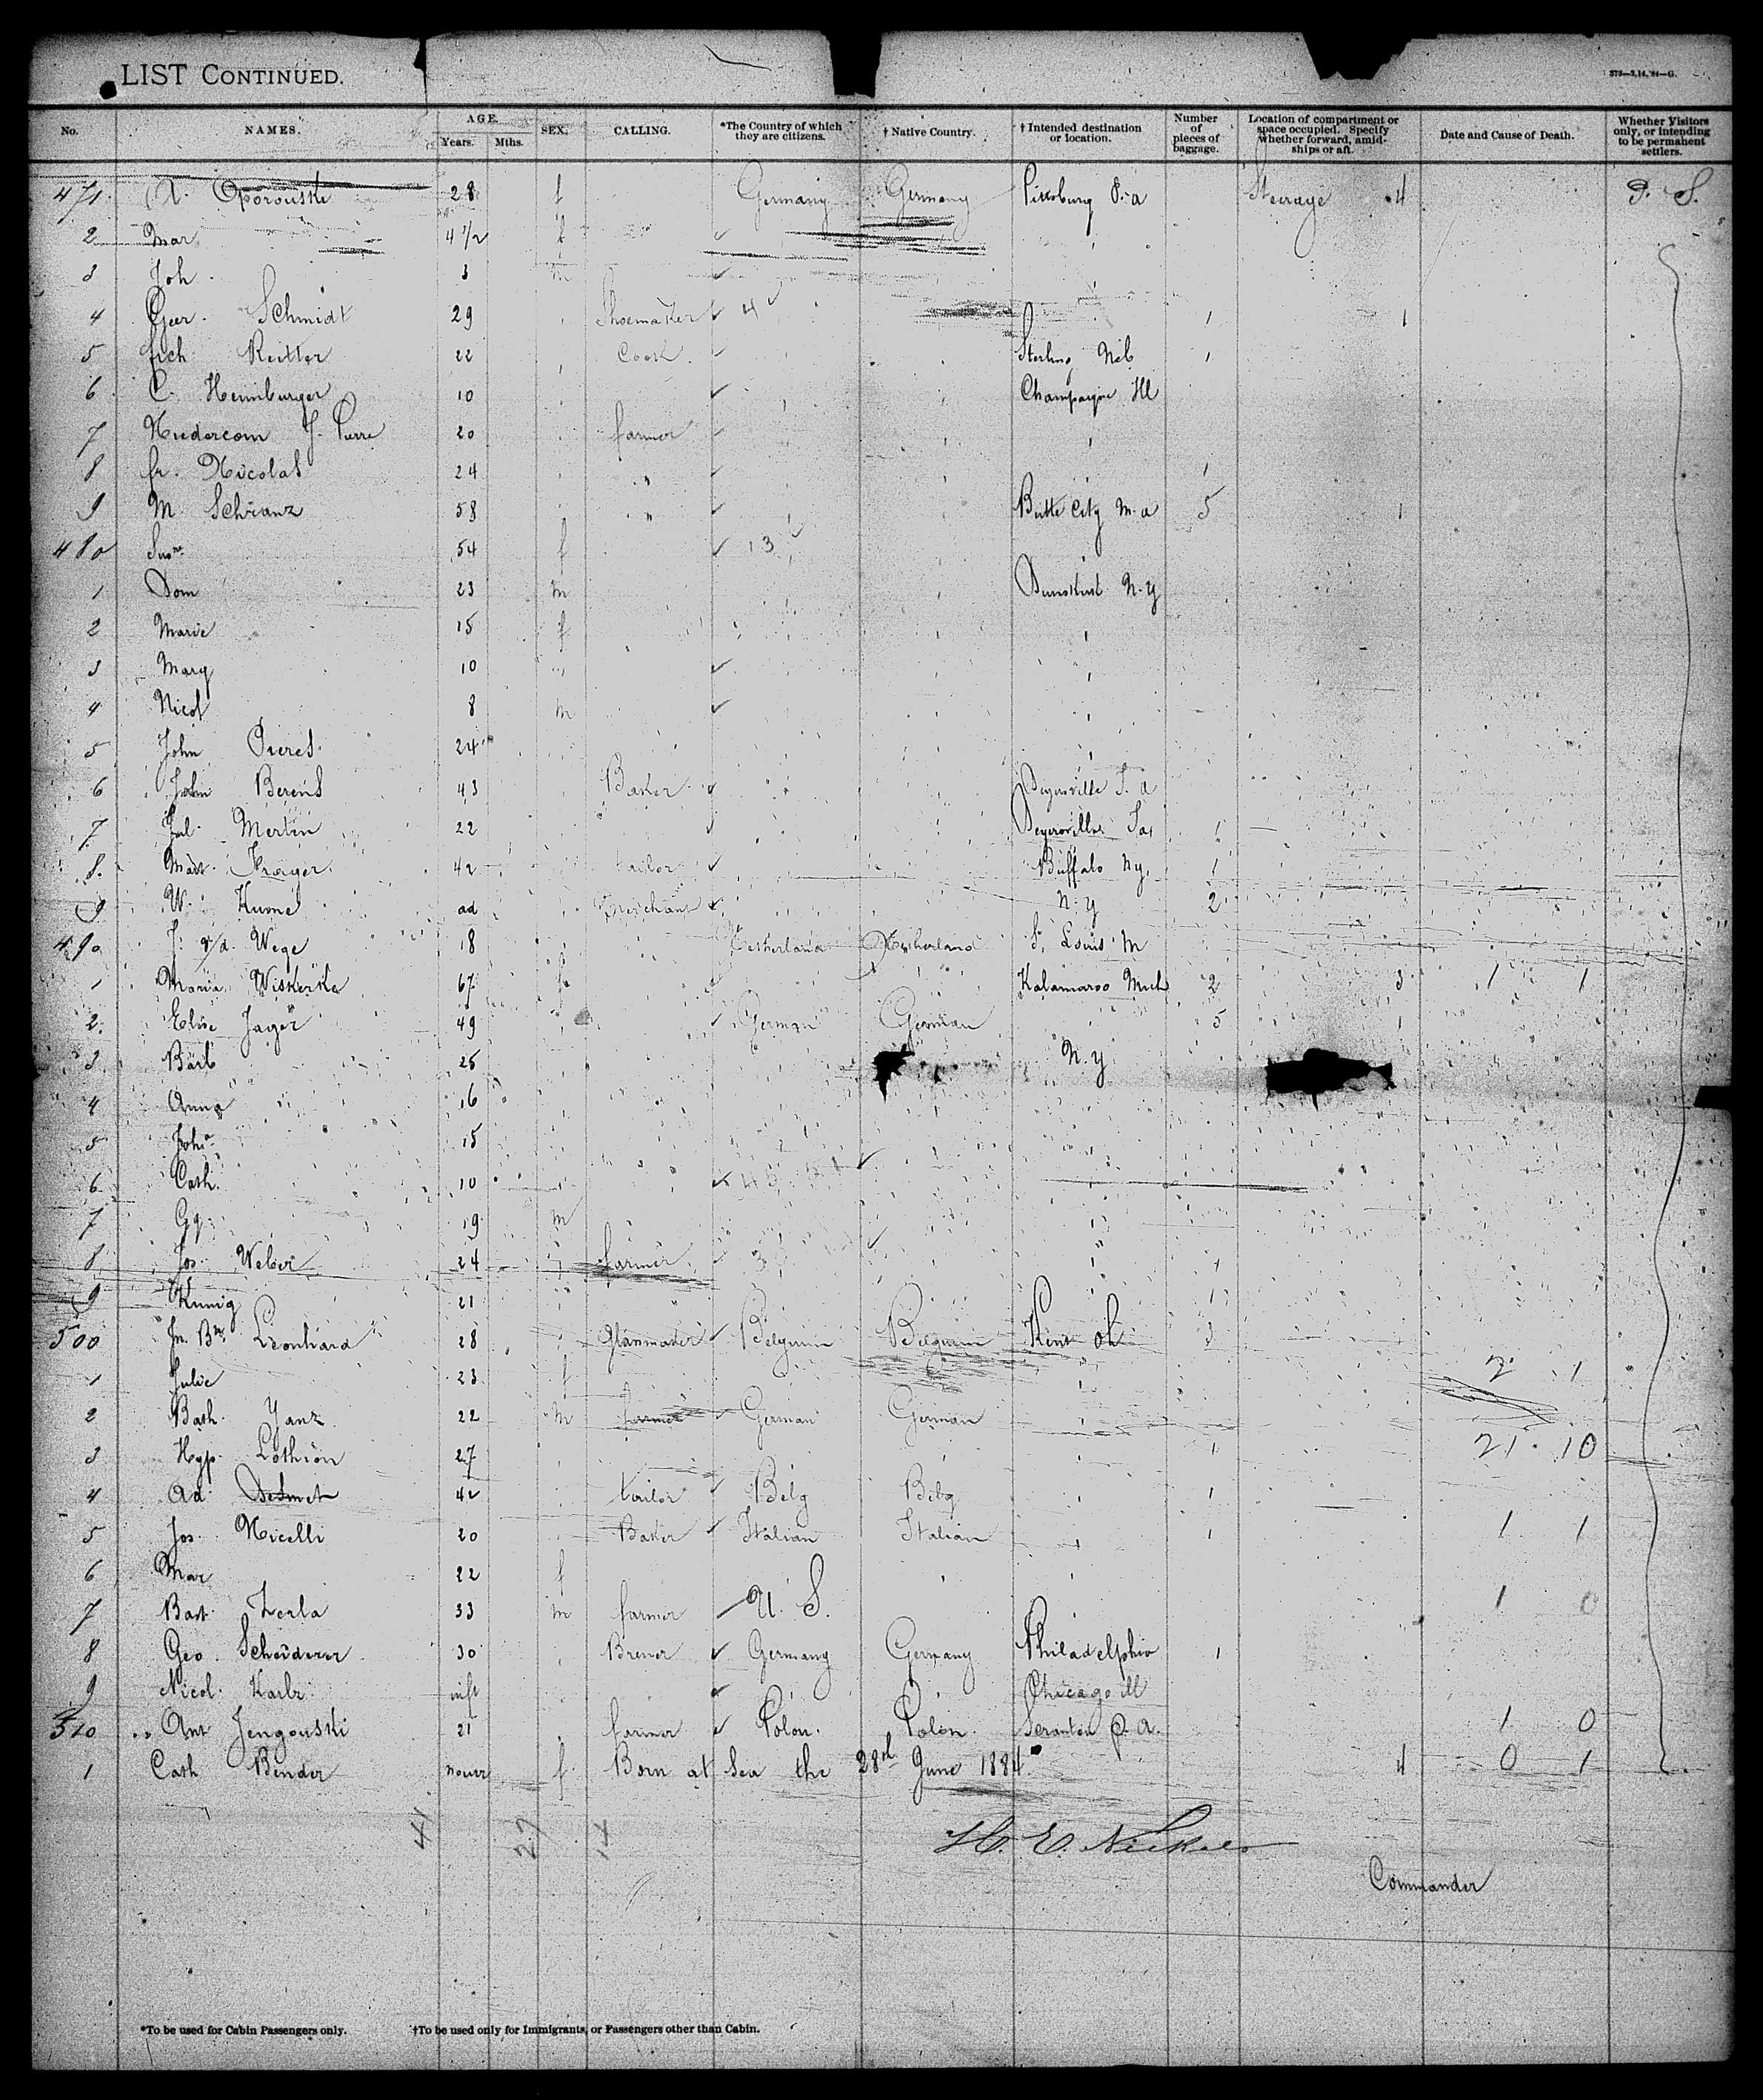 LIST CONTINUED.
373—3,14,'84—G.
No. NAMES. AGE. Years. Mths. SEX. CALLING. *The Country of which they are citizens. † Native Country. † Intended destination or location. Number of pieces of baggage. Location of compartment or space occupied. Specify whether forward, amidships or aft. Date and Cause of Death. Whether Visitors only, or intending to be permanent settlers.
471 28 f Germany Germany Pittsburg P.a Steerage 4 P. S.
2 Mar 4 1/2 f
3 Joh 3 m
4 Schmidt 29 Shoemaker 4 1 1
5 Reitter 22 Cook Sterling Neb 1
6 C. Heimburger 10 Champaigne Ill
7 J. Pierre 20 farmer
8 fr. Nicolas 24 " 1
9 M. Schranz 58 " Butte City M.a 5 1
480 54 f 13
1 Dom 23 m N.y
2 Marie 15 f
3 Mary 10
4 Nicol 8 m
5 John 24
6 John Berens 43 Baker
7 Jul. Mertin 22 1
8 Mart. 42 tailor Buffalo Ny. 1
9 W. ad Merchant N.y 2
490 J. v/d. Wege 18 Netherland Netherland St. Louis M
1 Maria Wiskerke 67 f Kalamazoo Mich 2 3 1 1
2 Elise Jager 49 German German 5 1
3 Barb 25 N.y
4 Anna 16
5 15
6 Cath. 10
7 19 m
8 Jos. Weber 24 farmer 1
9 Kunig 21 1
500 Leonhard 28 Glassmaker Belgium Belgium Kent oh 3
1 Julie 23 f 2 1
2 Bath. Yanz 22 m farmer German German
3 Hyp. Lothion 27 1 21 10
4 Ad Desmet 42 tailor Belg Belg 1
5 Jos. Nicelli 20 Baker Italian Italian 1 1 1
6 Mar 22 f
7 Bart. Zerla 33 m farmer U. S. 1 0
8 Geo. Scheiderer 30 Brewer Germany Germany Philadelphia 1
9 Nicol. Karlz inft Chicago ill
510 Ant Jengouski 21 farmer Polon. Polon. Scranton P.a. 1 0
1 Cath Bender f Born at Sea the 28th June 1884 4 0 1
41 27 14
Commander
*To be used for Cabin Passengers only. †To be used only for Immigrants, or Passengers other than Cabin.